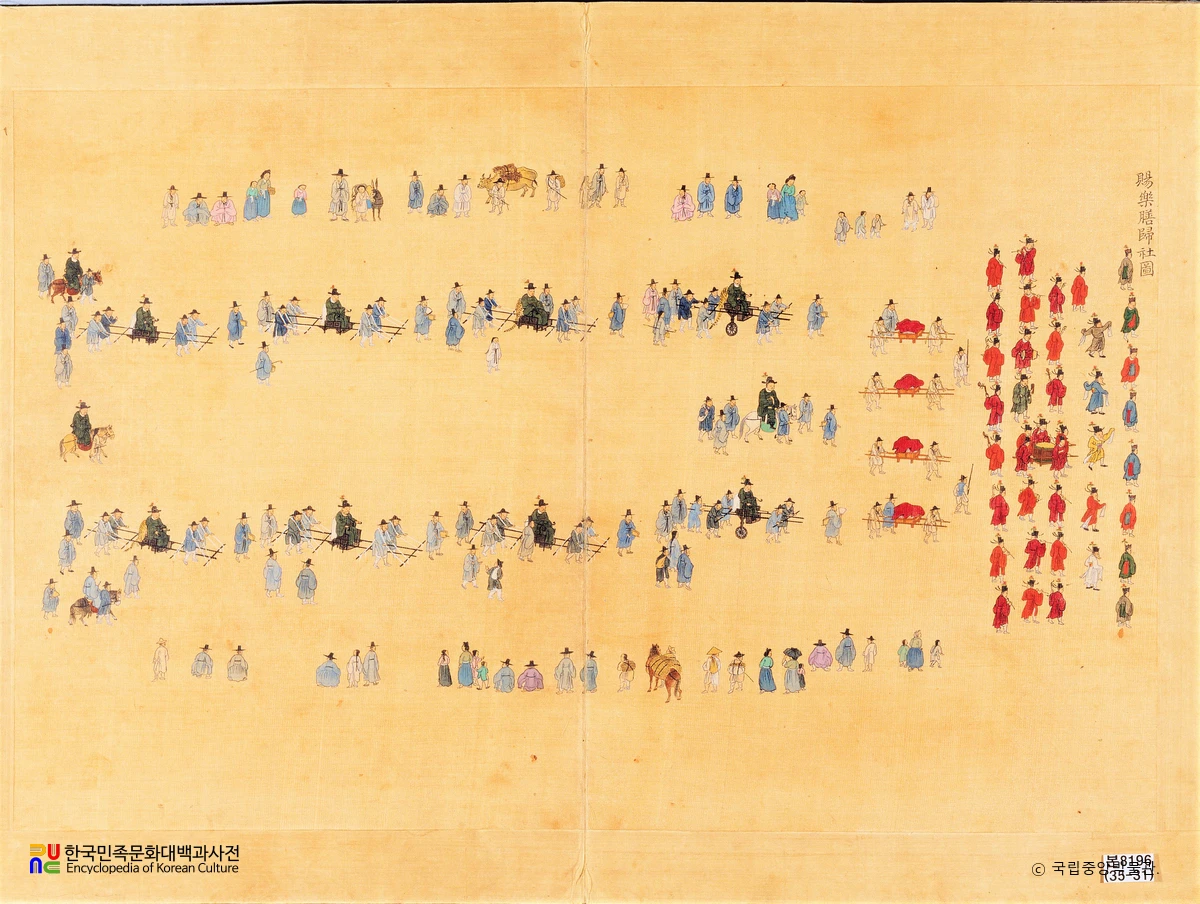 賜樂膳歸社圖
한국민족문화대백과사전
Encyclopedia of Korean Culture
ⓒ 국립중앙박물관.
본8196
(35-31)